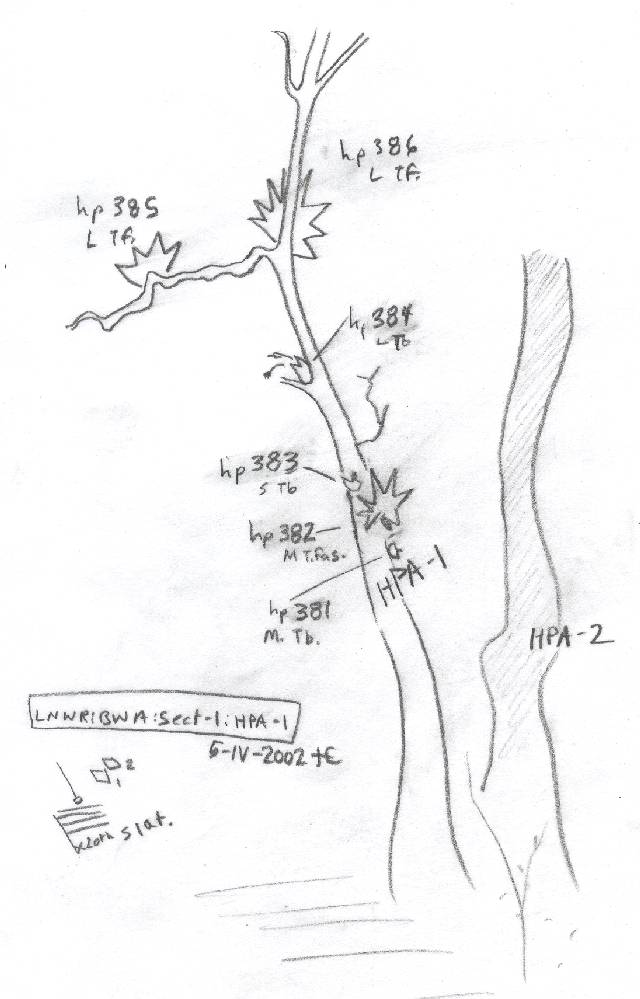 hp 386
L Tf.
hp 385
L Tf.
hp 384
L Tb
hp 383
S Tb
hp 382
M T.fas.
HPA-1
hp 381
M. Tb.
HPA-2
LNWR:BWA:Sect-1:HPA-1
5-IV-2002
2
1
slat.